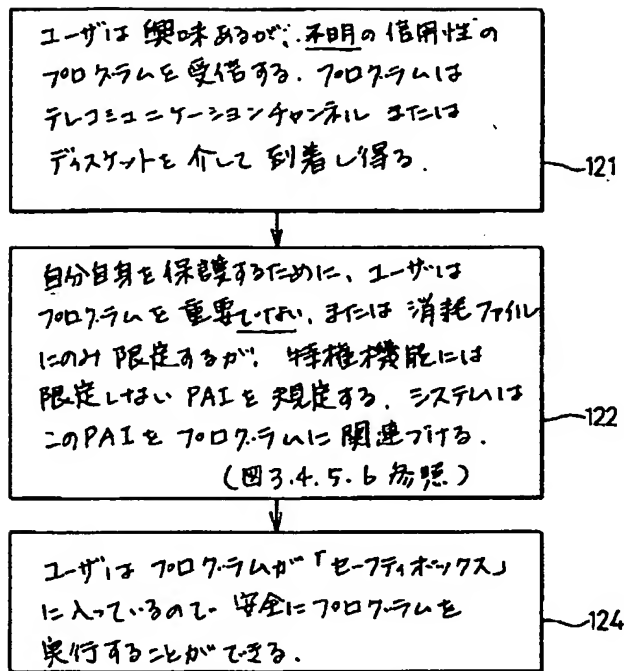 ユーザは 興味あるが、不明の 信用性の
プログラムを 受信する. プログラムは
テレコミュニケーションチャンネル または
ディスケットを 介して 到着し得る.
121
自分自身を 保護するために、ユーザは
プログラムを 重要でない、または 消耗ファイル
にのみ 限定するが、特権機能には
限定しない PAIを 規定する. システムは
このPAIを プログラムに 関連づける.
(図3.4.5.6 参照)
122
ユーザは プログラムが「セーフティボックス」
に入っているので 安全にプログラムを
実行することができる.
124